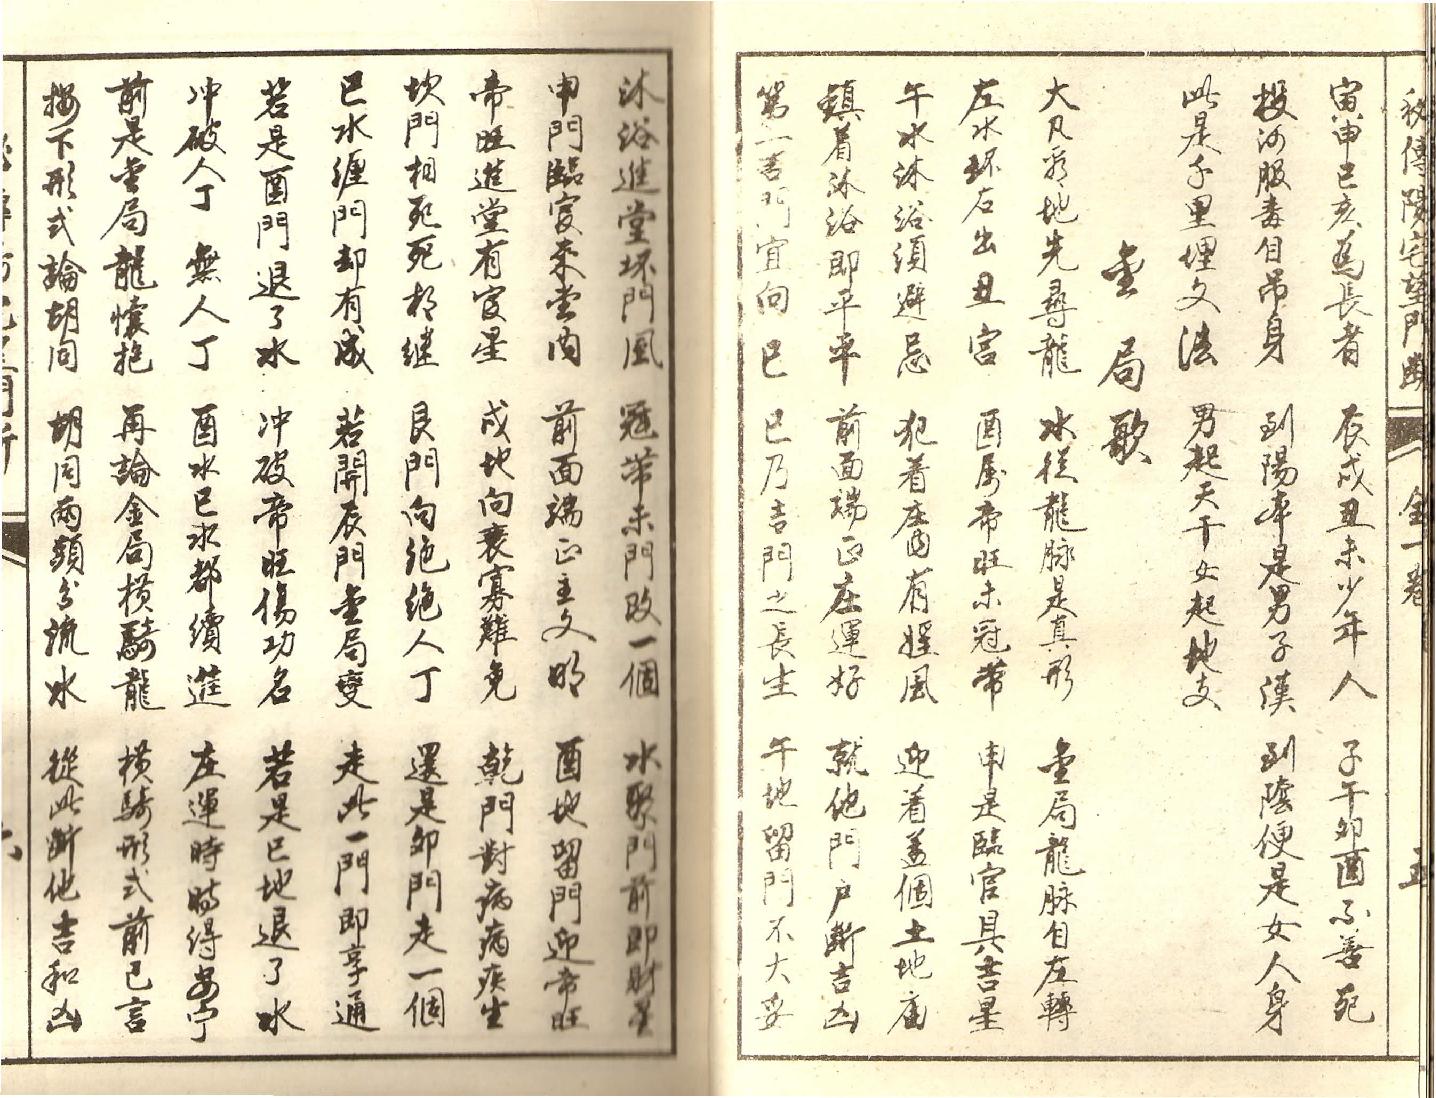 秘傳陽宅望門斷 全一卷 五
寅申巳亥為長者 辰戌丑未少年人 子午卯酉不善死
投河服毒自吊身 到陽本是男子漢 到陰便是女人身
此是千里埋文法 男起天干女起地支
金局歌
大凡看地先尋龍 水從龍脉是真形 金局龍脉自左轉
左水环右出丑宫 酉属帝旺未冠带 申是臨官具吉星
午水沐浴須避忌 犯着庄内有婬風 迎着盖個土地庙
鎮着沐浴即平平 前面端正庄運好 就他門户断吉凶
第一吉門宜向巳 巳乃吉門之長生 午地留門不大妥
沐浴進堂坏門風 冠带未門改一個 水聚門前即財星
申門臨官來堂内 前面端正主文明 酉地留門迎帝旺
帝旺進堂有官星 戌地向衰寡難免 乾門對病病疾生
坎門相死死相継 艮門向绝绝人丁 還是卯門走一個
巳水缠門却有成 若開辰門金局变 走此一門即享通
若是酉門退了水 冲破帝旺傷功名 若是巳地退了水
冲破人丁無人丁 酉水巳水都續進 庄運時時得安宁
前是金局龍懷抱 再論金局横騎龍 横騎形式前已言
按下形式論胡同 胡同两頭分流水 從此断他吉和凶
六